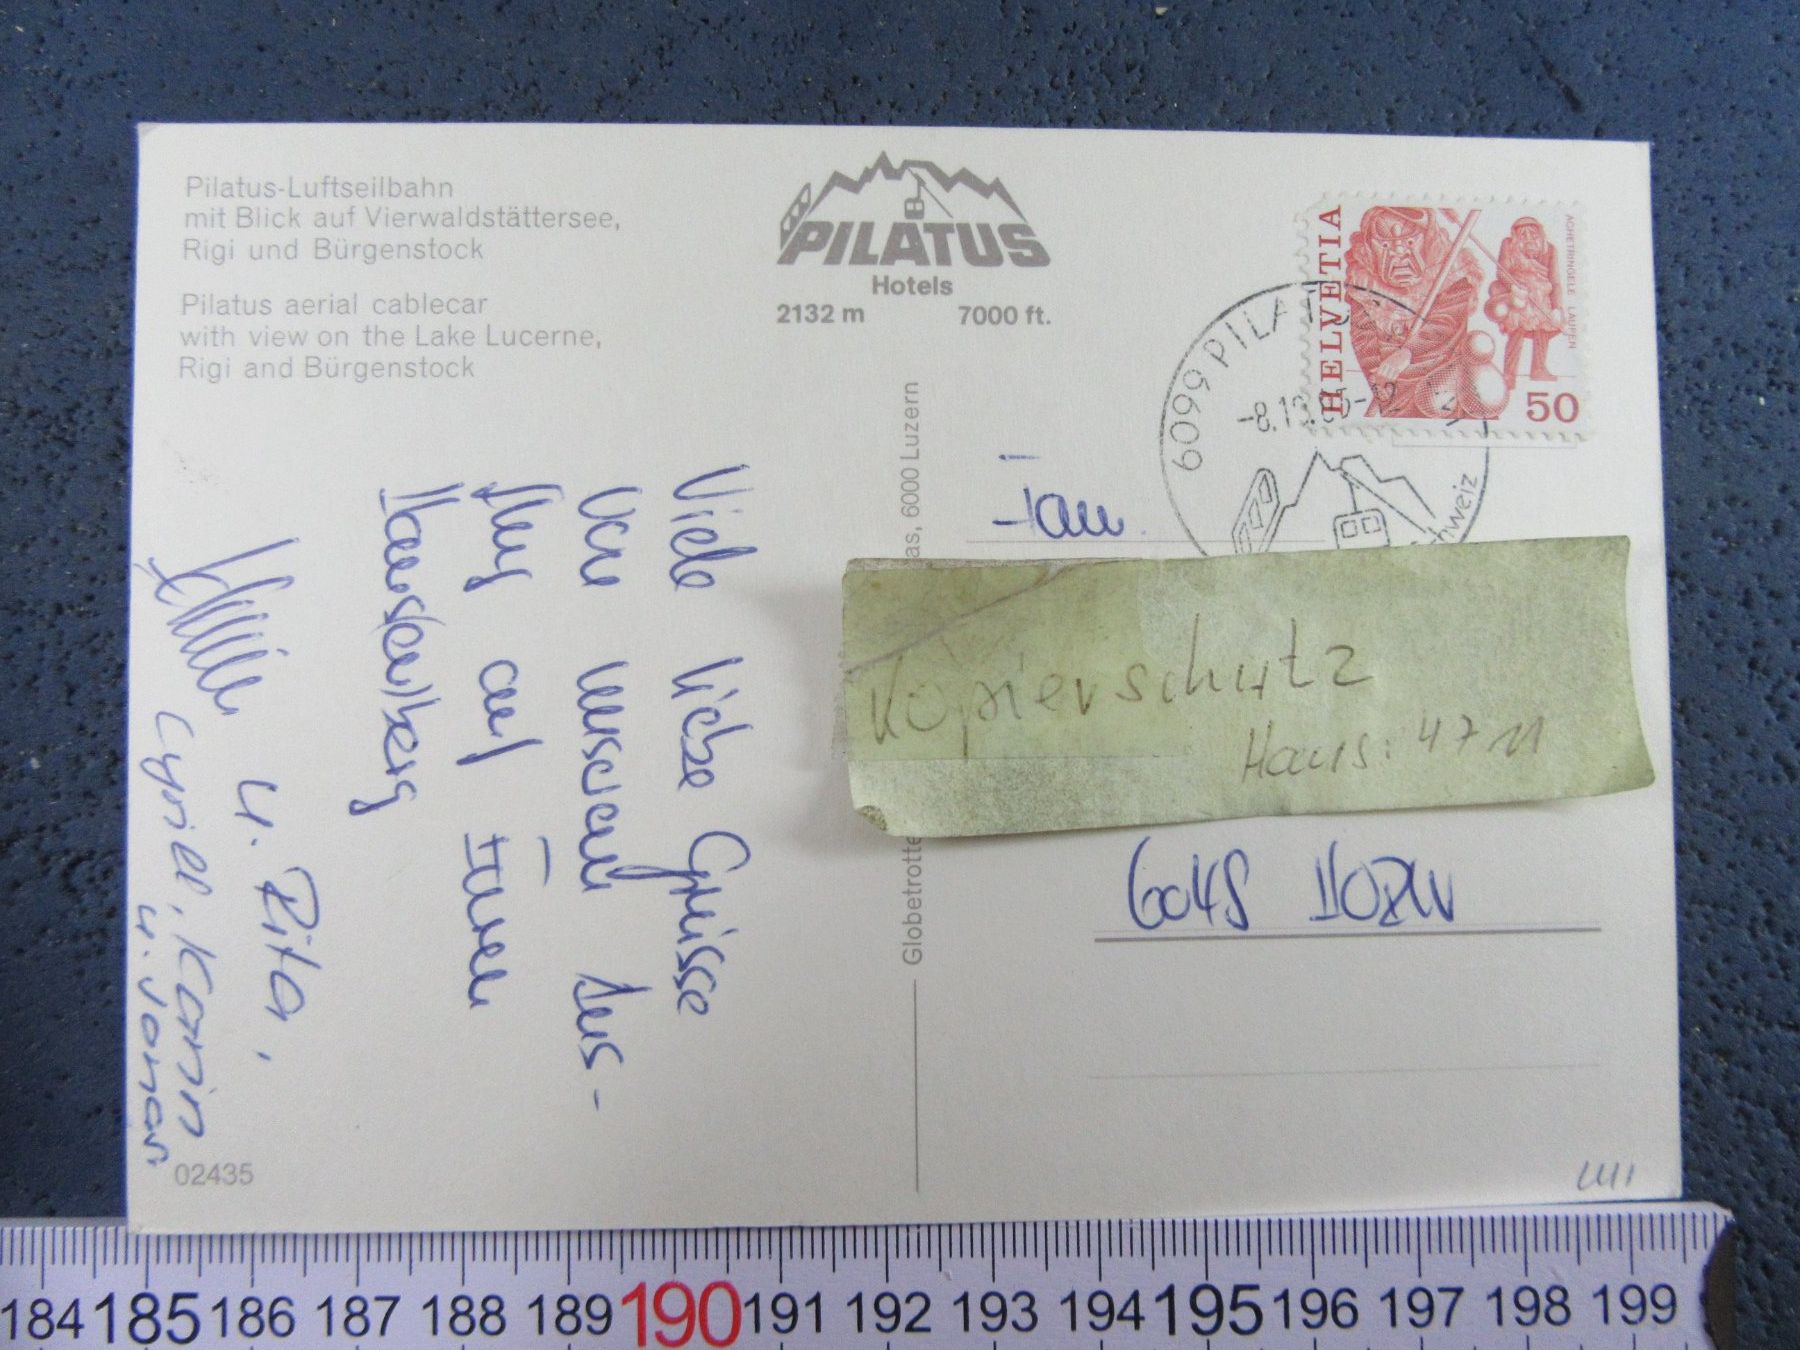 Pilatus-Luftseilbahn
mit Blick auf Vierwaldstättersee,
Rigi und Bürgenstock
Pilatus aerial cablecar
with view on the Lake Lucerne,
Rigi and Bürgenstock
PILATUS
Hotels
2132 m 7000 ft.
HELVETIA
ACHETRINGELE LAUPEN
50
6099 PILATUS
-8.12
Schweiz
Viele liebe Grüsse
von unserem Aus-
flug auf
u. Rita,
Cyrill, Karin
u. Jonas
Globetrotte as, 6000 Luzern
Fam.
Kopierschutz
Haus: 4711
6048 Horw
02435
184 185 186 187 188 189 190 191 192 193 194 195 196 197 198 199